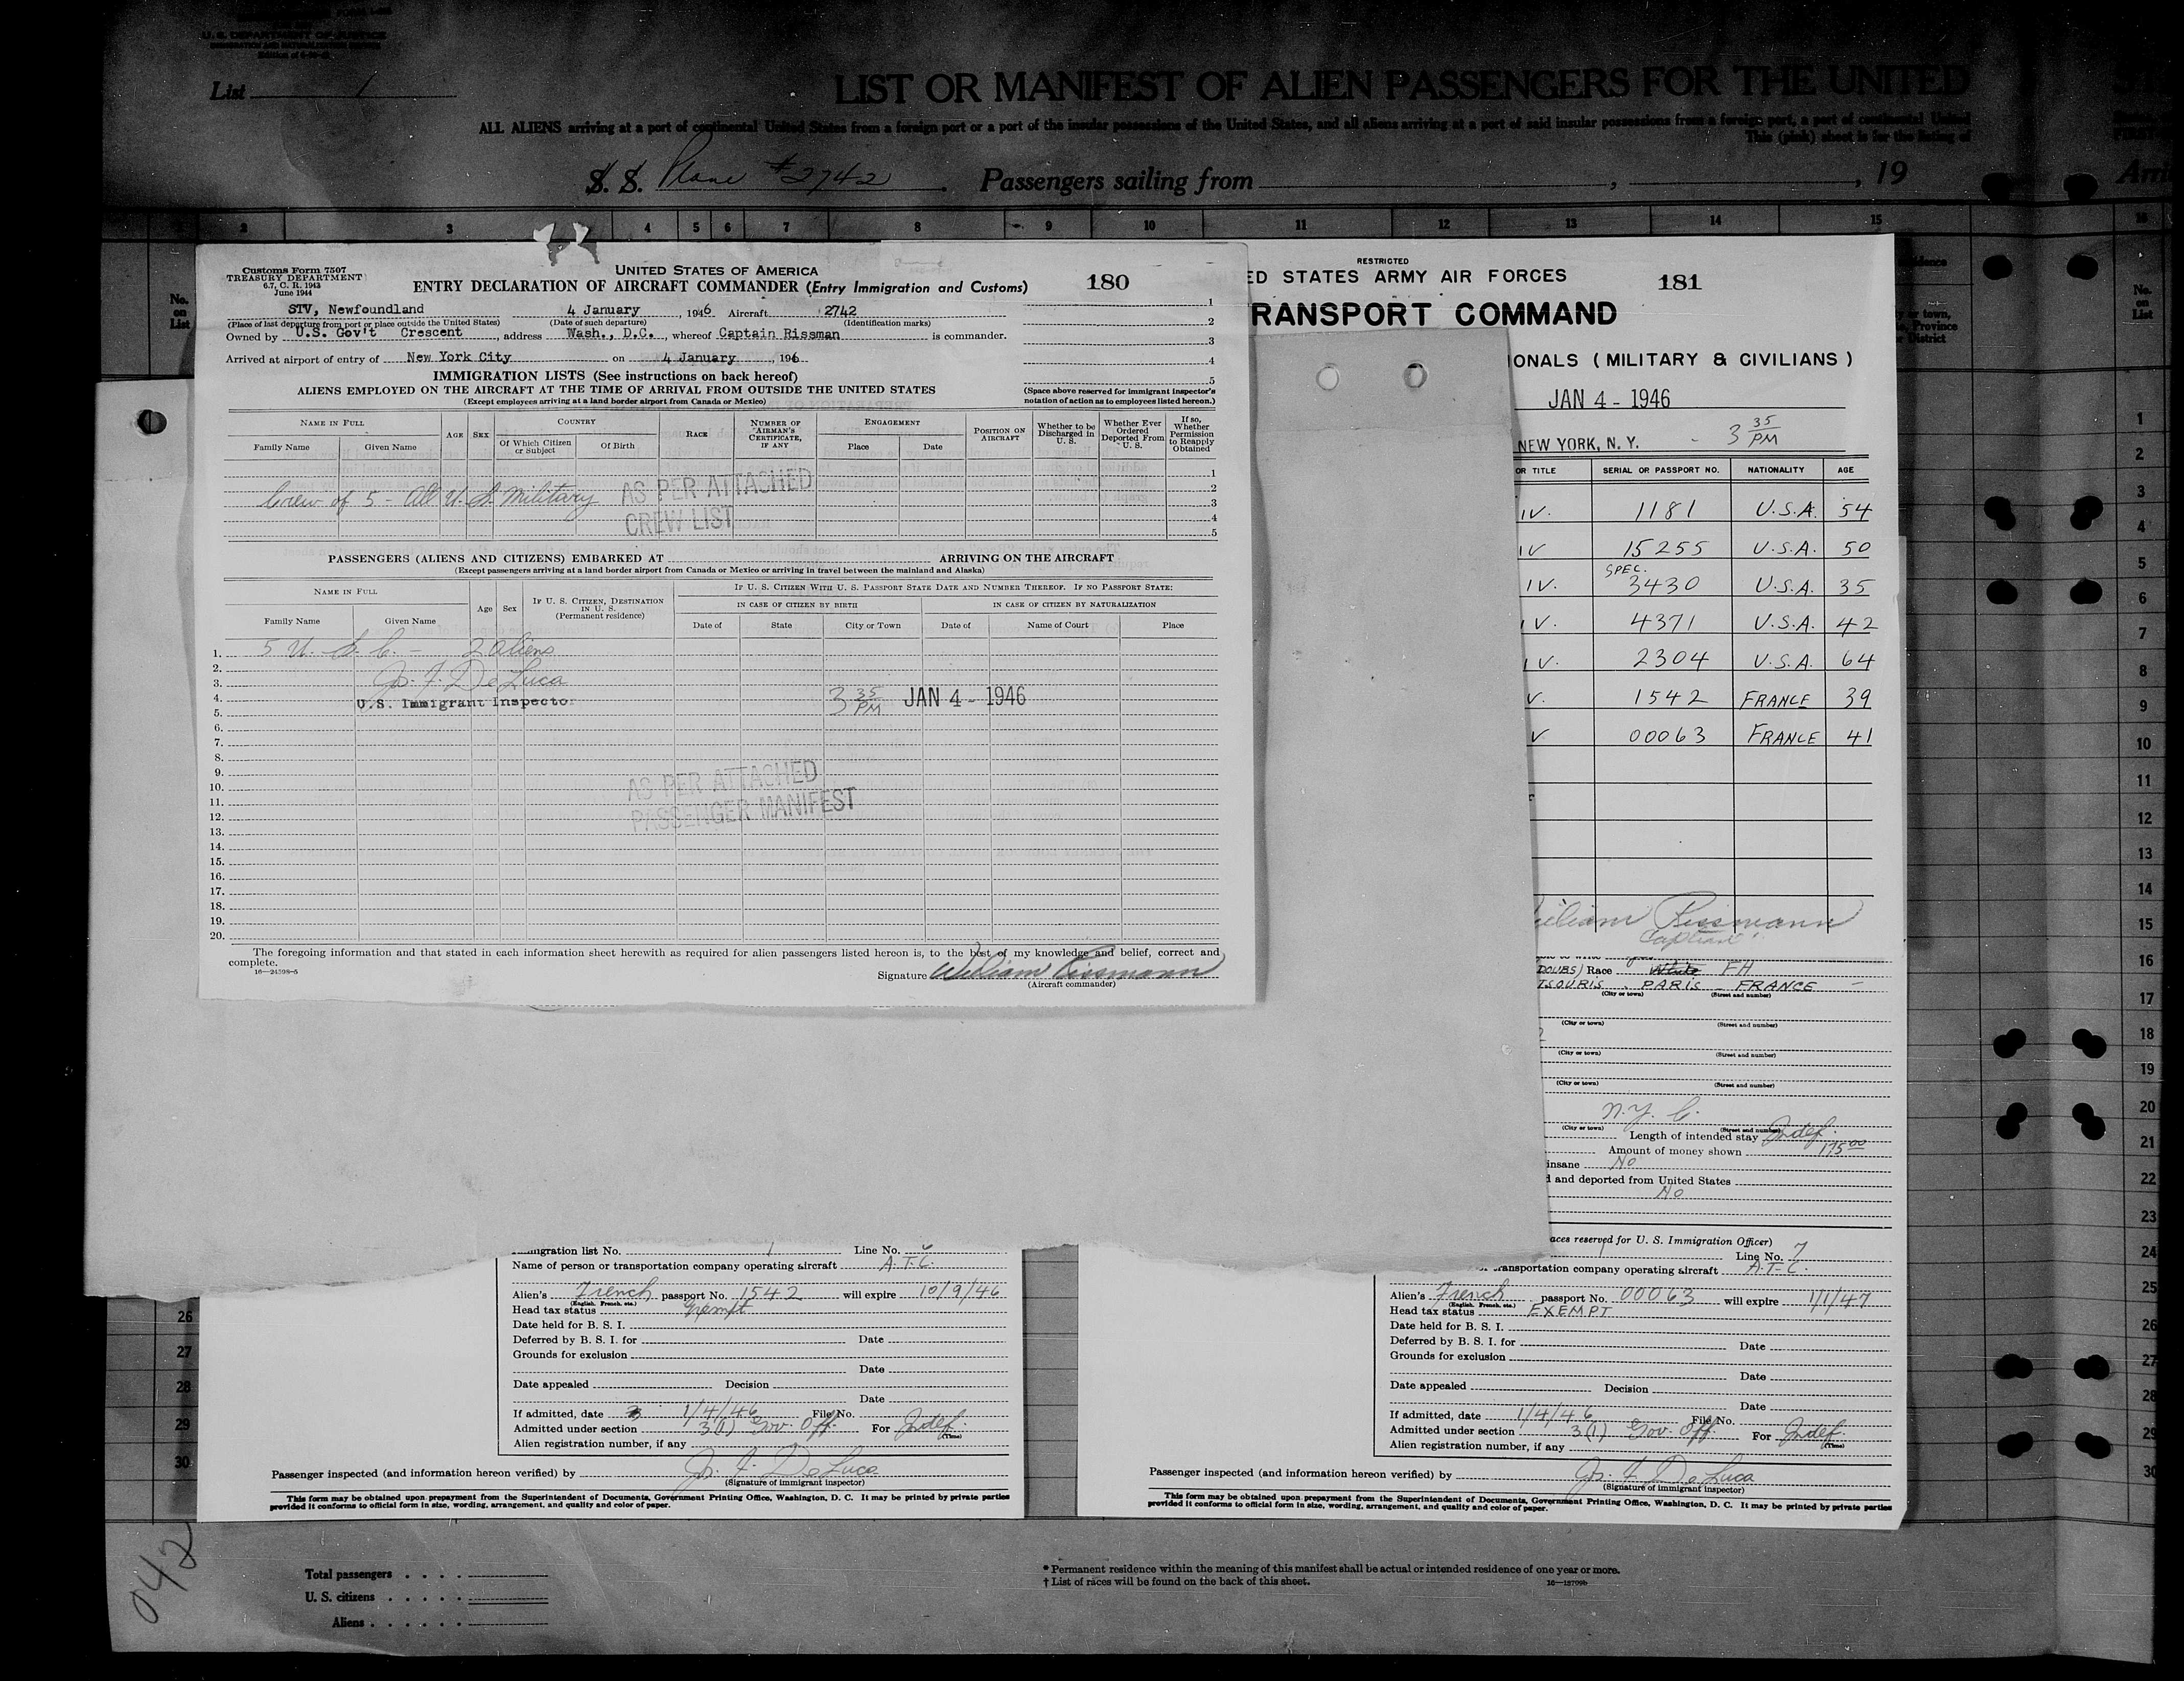 U. S. DEPARTMENT OF JUSTICE
IMMIGRATION AND NATURALIZATION SERVICE
List 1
LIST OR MANIFEST OF ALIEN PASSENGERS FOR THE UNITED
ALL ALIENS arriving at a port of continental United States from a foreign port or a port of the insular possessions of the United States, and all aliens arriving at a port of said insular possessions from a foreign port, a port of continental United
This (pink) sheet is for the listing of
S. S. Plane #2742 Passengers sailing from , , 19
2 3 4 5 6 7 8 9 10 11 12 13 14 15 16
No. on List
Customs Form 7507
TREASURY DEPARTMENT
6.7, C. R. 1943
June 1944
UNITED STATES OF AMERICA
ENTRY DECLARATION OF AIRCRAFT COMMANDER (Entry Immigration and Customs)
180
STV, Newfoundland 4 January , 1946 Aircraft 2742
(Place of last departure from port or place outside the United States) (Date of such departure) (Identification marks)
Owned by U.S. Gov't Crescent , address Wash., D.C. , whereof Captain Rissman is commander.
Arrived at airport of entry of New York City on 4 January , 196
IMMIGRATION LISTS (See instructions on back hereof)
ALIENS EMPLOYED ON THE AIRCRAFT AT THE TIME OF ARRIVAL FROM OUTSIDE THE UNITED STATES
(Except employees arriving at a land border airport from Canada or Mexico)
1
2
3
4
5
(Space above reserved for immigrant inspector's notation of action as to employees listed hereon.)
NAME IN FULL AGE SEX COUNTRY RACE NUMBER OF AIRMAN'S CERTIFICATE, IF ANY ENGAGEMENT POSITION ON AIRCRAFT Whether to be Discharged in U. S. Whether Ever Ordered Deported From U. S. If so, Whether Permission to Reapply Obtained
Family Name Given Name Of Which Citizen or Subject Of Birth Place Date
1
2
3
4
5
Crew of 5 - All U.S. Military
AS PER ATTACHED
CREW LIST
PASSENGERS (ALIENS AND CITIZENS) EMBARKED AT ARRIVING ON THE AIRCRAFT
(Except passengers arriving at a land border airport from Canada or Mexico or arriving in travel between the mainland and Alaska)
NAME IN FULL Age Sex IF U. S. CITIZEN, DESTINATION IN U. S. (Permanent residence) IF U. S. CITIZEN WITH U. S. PASSPORT STATE DATE AND NUMBER THEREOF. IF NO PASSPORT STATE:
IN CASE OF CITIZEN BY BIRTH IN CASE OF CITIZEN BY NATURALIZATION
Family Name Given Name Date of State City or Town Date of Name of Court Place
1. 5 U. S. C. - 2 Aliens
2.
3. Jo. F. De Luca
4. U.S. Immigrant Inspector 3 35 PM JAN 4 - 1946
5.
6.
7.
8.
9.
10.
11.
12.
13.
14.
15.
16.
17.
18.
19.
20.
AS PER ATTACHED
PASSENGER MANIFEST
The foregoing information and that stated in each information sheet herewith as required for alien passengers listed hereon is, to the best of my knowledge and belief, correct and
complete.
16—24598-5
Signature William Rissmann
(Aircraft commander)
RESTRICTED
ED STATES ARMY AIR FORCES
181
RANSPORT COMMAND
IONALS (MILITARY & CIVILIANS)
JAN 4 - 1946
NEW YORK, N. Y. - 3 35 PM
OR TITLE SERIAL OR PASSPORT NO. NATIONALITY AGE
IV. 1181 U.S.A. 54
IV 15255 U.S.A. 50
IV. SPEC. 3430 U.S.A. 35
IV. 4371 U.S.A. 42
IV. 2304 U.S.A. 64
V. 1542 FRANCE 39
V 00063 FRANCE 41
William Rissmann
Captain
(DOUBS) Race White FH
TSOURIS PARIS - FRANCE -
(City or town) (Street and number)
(City or town) (Street and number)
(City or town) (Street and number)
(City or town) (Street and number)
N.Y. C.
(City or town) (Street and number)
Length of intended stay Indef.
Amount of money shown 175.00
insane No
d and deported from United States
No
aces reserved for U. S. Immigration Officer)
1 Line No. 7
ansportation company operating aircraft A.T.C.
Alien's French passport No. 00063 will expire 1/1/47
(English, French, etc.)
Head tax status EXEMPT
Date held for B. S. I.
Deferred by B. S. I. for Date
Grounds for exclusion
Date
Date appealed Decision
Date
If admitted, date 1/4/46 File No.
Admitted under section 3(1) Gov. Off. For Indef.
(Time)
Alien registration number, if any
Passenger inspected (and information hereon verified) by Jo. F. De Luca
(Signature of immigrant inspector)
This form may be obtained upon prepayment from the Superintendent of Documents, Government Printing Office, Washington, D. C. It may be printed by private parties
provided it conforms to official form in size, wording, arrangement, and quality and color of paper.
migration list No. 1 Line No. 6
Name of person or transportation company operating aircraft A.T.C.
Alien's French passport No. 1542 will expire 10/9/46
(English, French, etc.)
Head tax status Exempt
Date held for B. S. I.
Deferred by B. S. I. for Date
Grounds for exclusion
Date
Date appealed Decision
Date
If admitted, date 1/4/46 File No.
Admitted under section 3(1) Gov. Off. For Indef.
(Time)
Alien registration number, if any
Passenger inspected (and information hereon verified) by Jo. F. De Luca
(Signature of immigrant inspector)
This form may be obtained upon prepayment from the Superintendent of Documents, Government Printing Office, Washington, D. C. It may be printed by private parties
provided it conforms to official form in size, wording, arrangement, and quality and color of paper.
26
27
28
29
30
No. on List
1
2
3
4
5
6
7
8
9
10
11
12
13
14
15
16
17
18
19
20
21
22
23
24
25
26
27
28
29
30
042
Total passengers . . . .
U. S. citizens . . . . .
Aliens . . . . . .
* Permanent residence within the meaning of this manifest shall be actual or intended residence of one year or more.
† List of races will be found on the back of this sheet.